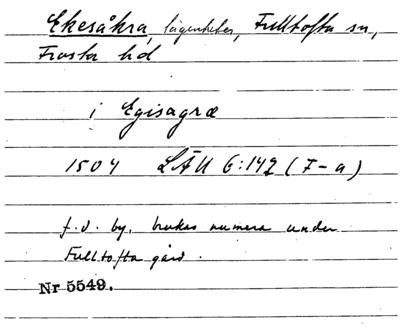 Ekesåkra, lägenheter, Fulltofta sn,
Frosta hd
i Egisagræ
1504 LÄU 6:142 (F-a)
f.d. by, brukas numera under
Fulltofta gård.
Nr 5549.